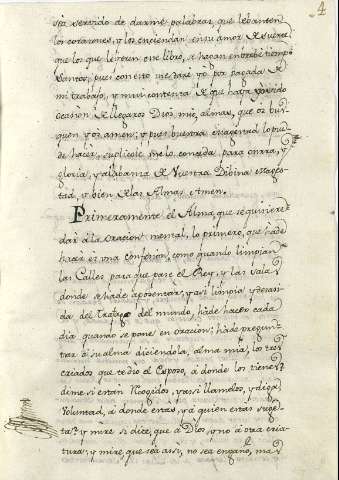 4
sea servido de darme palabras, que lebanten
los corazones, y los enciendan en su amor. De suerte
que los que leyeren este libro, se hagan en brebe tiempo
Santos, pues con esto me dare yo por pagada de
mi trabajo, y muy contenta de que haya havido
ocasion de llegaros Dios mio, almas, que os bus
quen y os amen; y pues vuestra Magestad lo pue
de hacer, suplicole me lo conceda para onrra, y
gloria, y alabanza de Vuestra Dibina Mages
tad, y bien de las Almas Amen.
Primeramente el Alma, que se quisiere
dar a la oracion mental, lo primero, que ha de
hacer es una confesion, como quando limpian
las Calles para que pase el Rey, y las salas
donde se ha de aposentar; y asi limpia y
da del Trafago del mundo, ha de hacer cada
dia quando se pone en oracion; ha de pregun
trar a su alma diciendola, alma mia, los tres
criados que te dio el Esposo, a donde los tienes?
dime si estan Recogidos, y assi llamelos, y diga
Voluntad, a donde estas, y a quien estas suge
ta? y mire si dice, que a Dios, y no a otra cria
tura; y mire, que sea assi, no sea engaño, mas